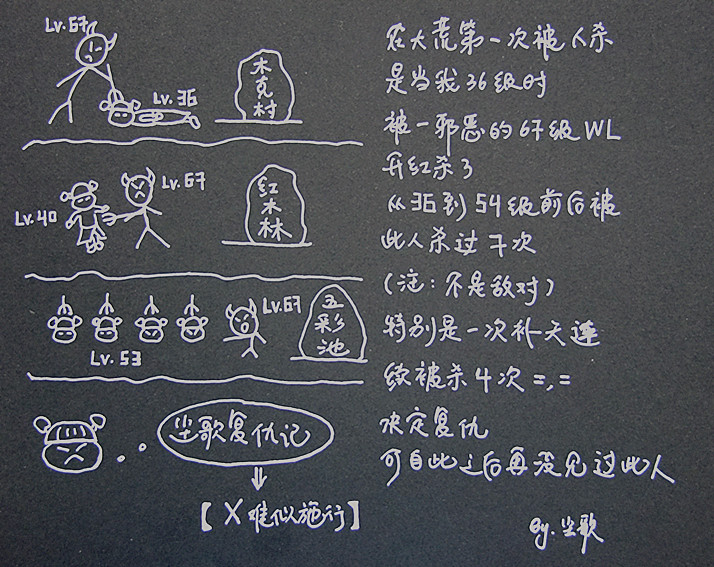 Lv.67
Lv.36
木克村
Lv.40
Lv.67
红木林
Lv.53
Lv.67
五彩池
尘歌复仇记
【X难似施行】
在大荒第一次被人杀
是当我36级时
被一邪恶的67级WL
开红杀了
从36到54级前后被
此人杀过7次
(注:不是敌对)
特别是一次补天连
续被杀4次=,=
决定复仇
可自此之后再没见过此人
By.尘歌